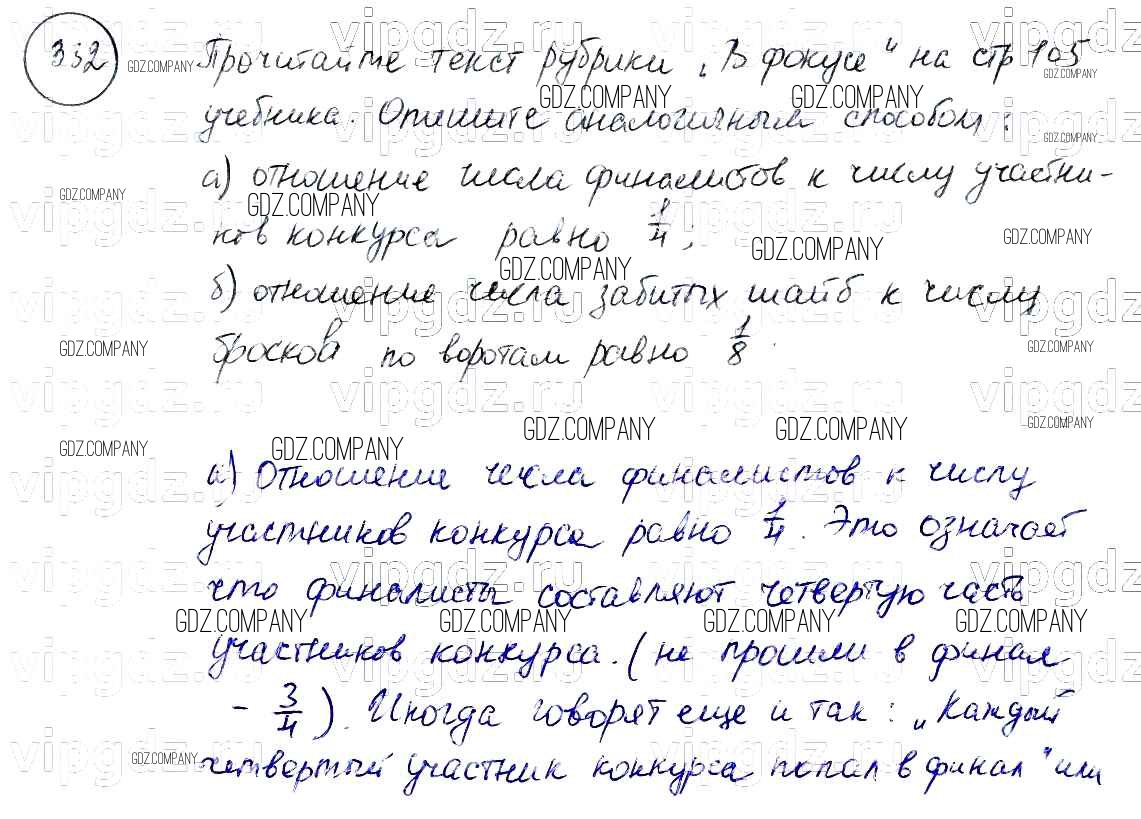 332
Прочитайте текст рубрики „В фокусе“ на стр 105
учебника. Опишите аналогичным способом:
а) отношение числа финалистов к числу участни-
ков конкурса равно 1/4;
б) отношение числа забитых шайб к числу
бросков по воротам равно 1/8.
а) Отношение числа финалистов к числу
участников конкурса равно 1/4. Это означает
что финалисты составляют четвертую часть
участников конкурса. (не прошли в финал
- 3/4). Иногда говорят еще и так: „Каждый
четвертый участник конкурса попал в финал“ или